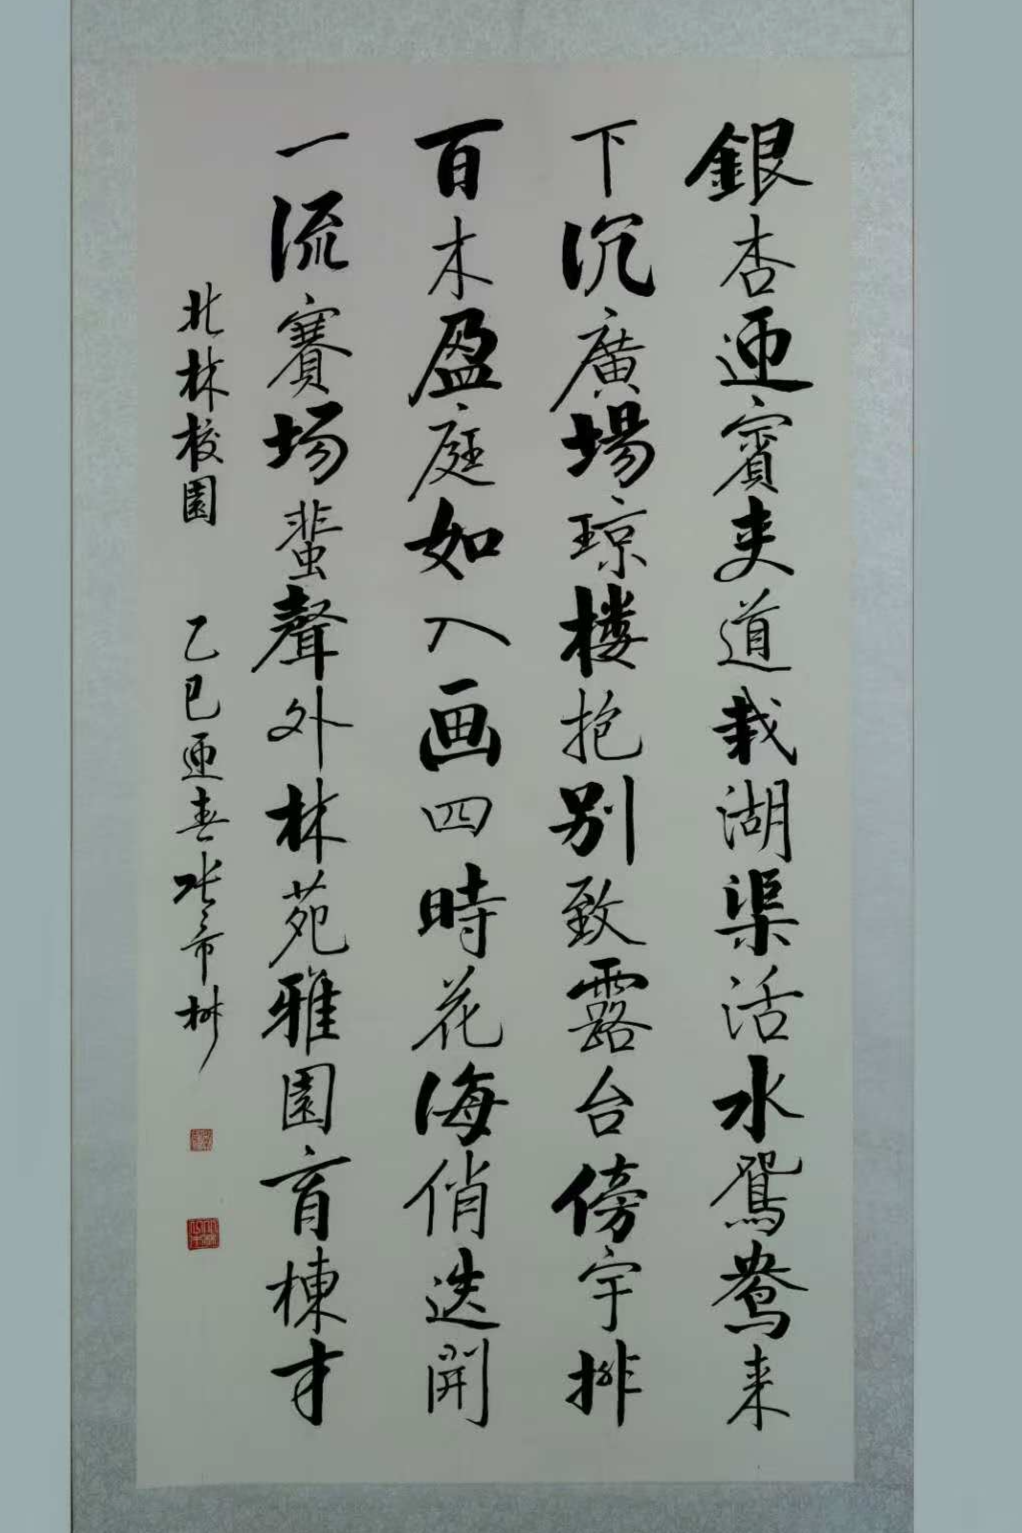 銀杏迎賓夹道栽湖渠活水鴛鴦来
下沉廣場琼楼抱别致露台傍宇排
百木盈庭如入画四時花海俏迭開
一流赛场蜚聲外林苑雅園育棟才
北林校園 乙巳迎春张希树